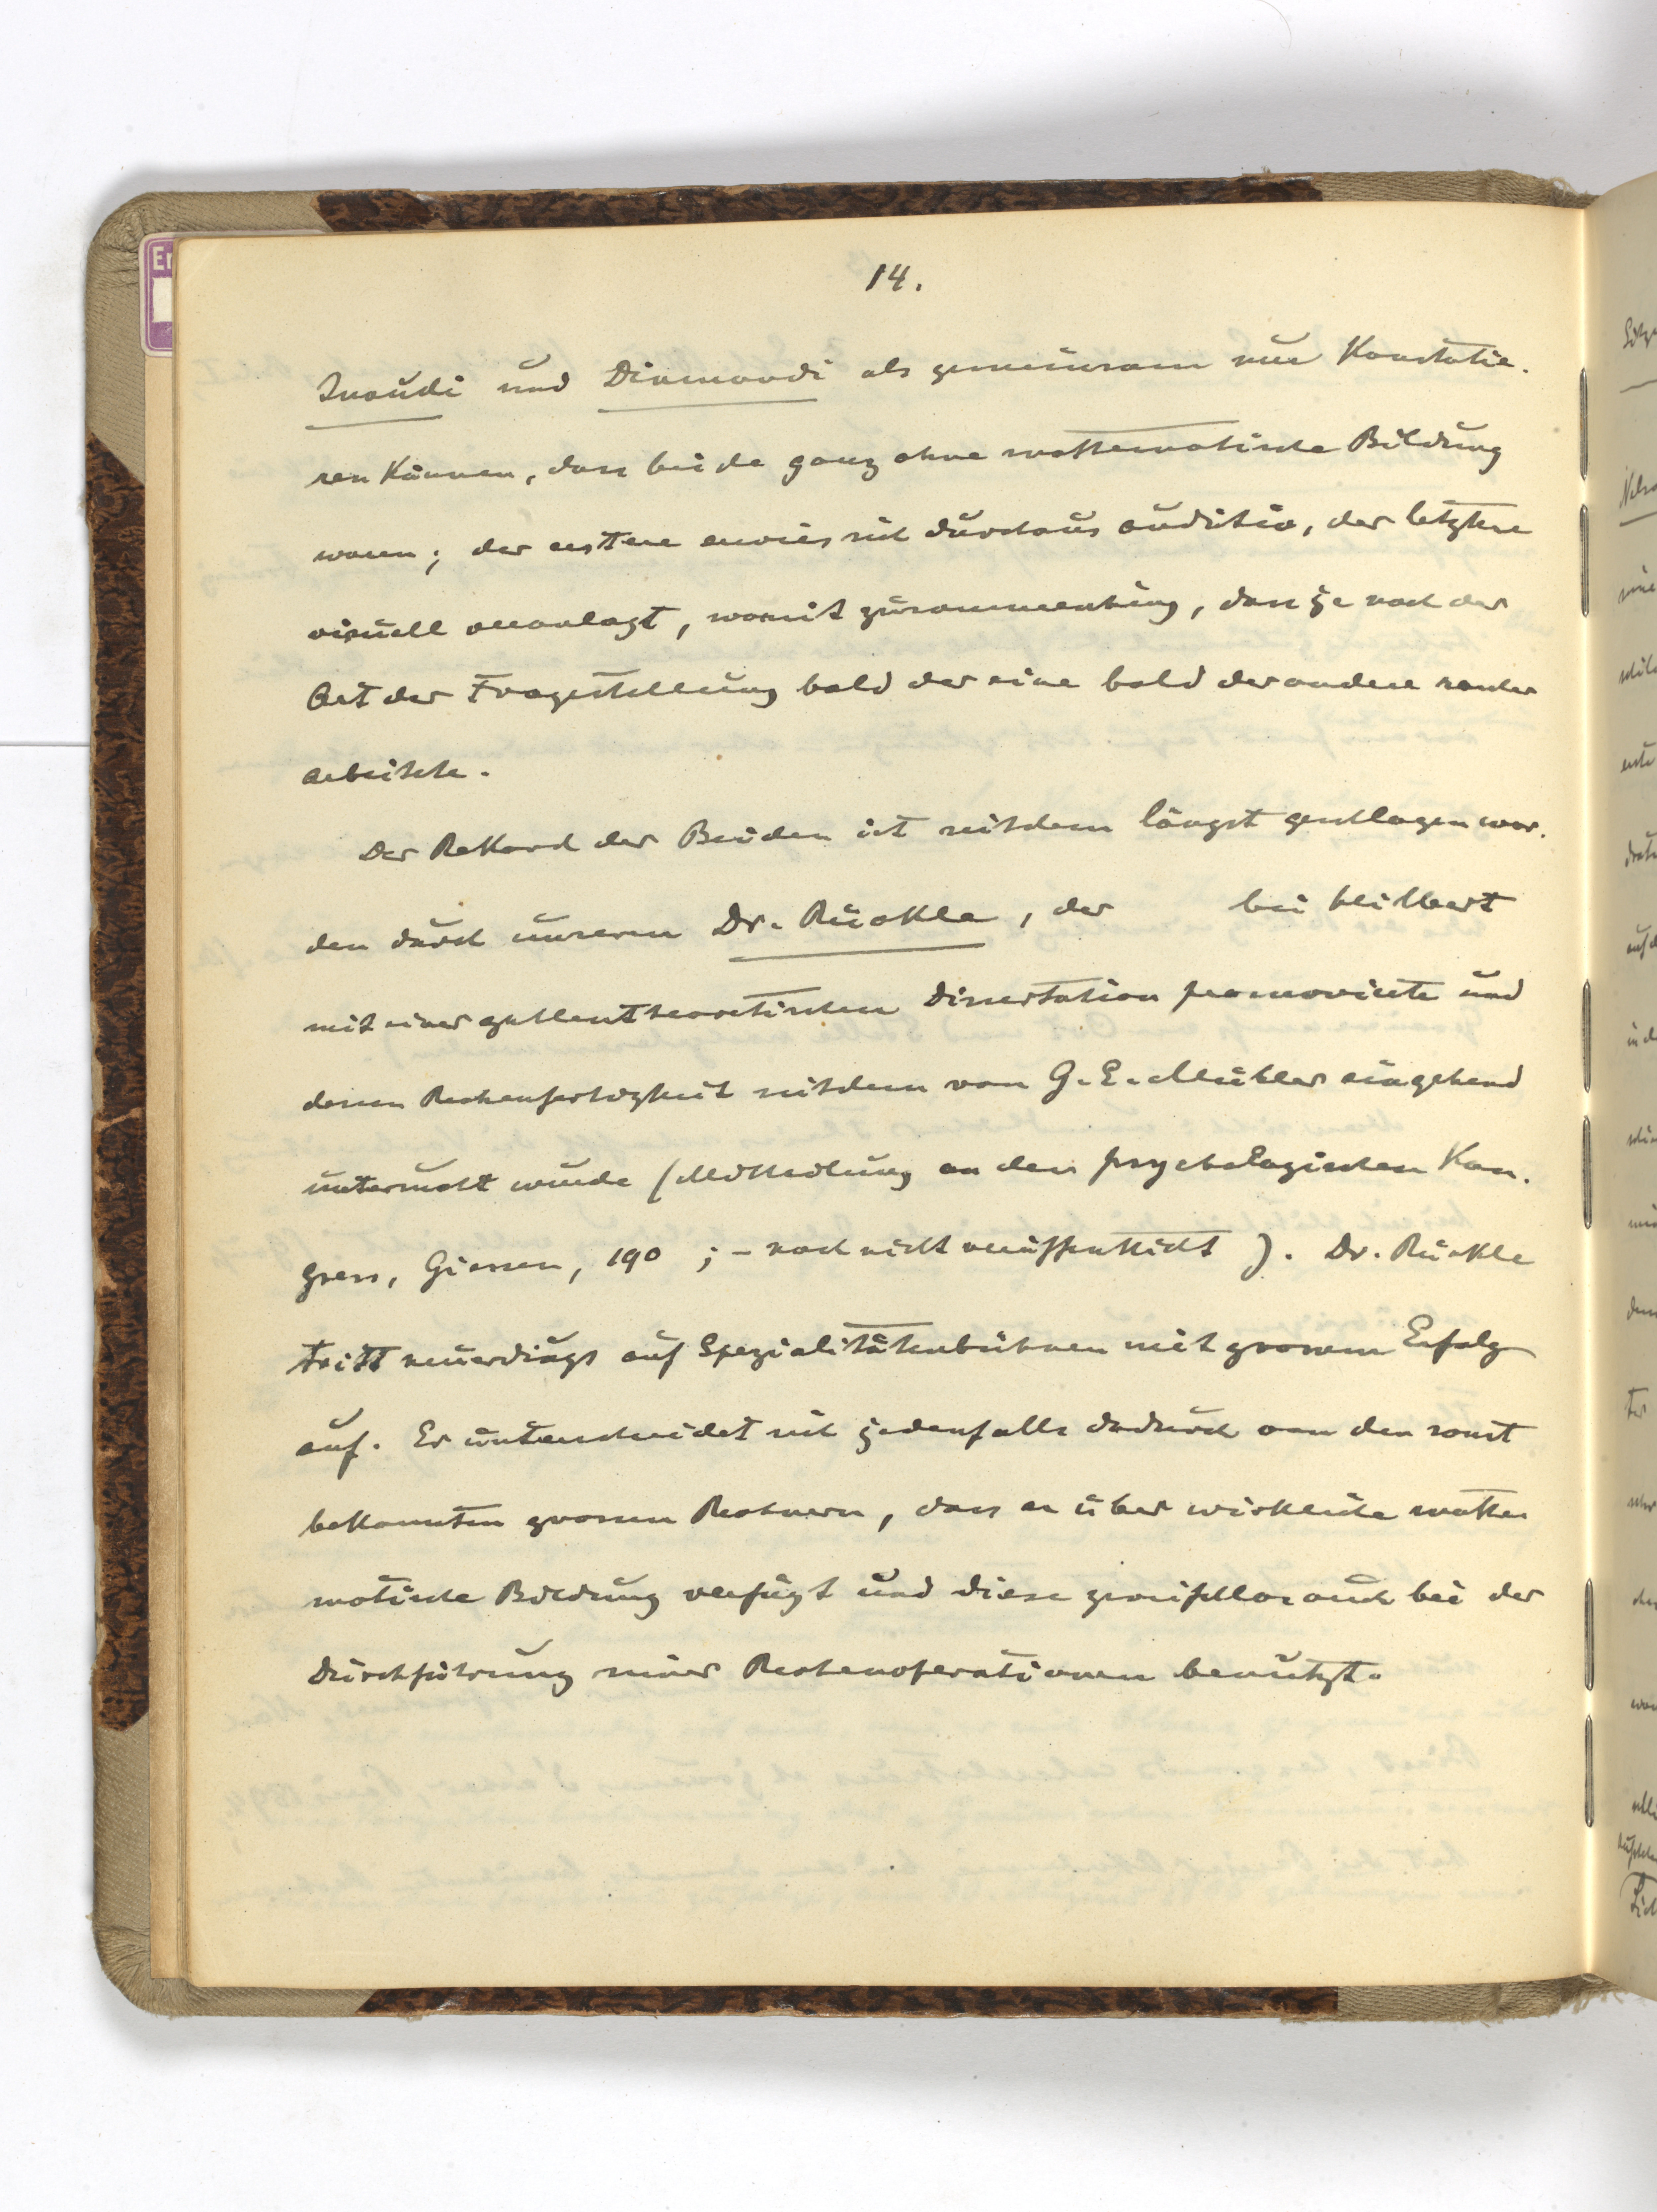 14.
Inaudi und Diamandi als gemeinsam nur Konstatie-
ren können, dass beide ganz ohne mathematische Bildung
waren; der erstere erwies sich durchaus auditiv, der letztere
visuell veranlagt, womit zusammenhing, dass je nach der
Art der Fragestellung bald der eine bald der andere rascher
arbeitete.
Der Rekord der Beiden ist seitdem längst geschlagen wor-
den durch unseren Dr. Rückle, der bei Hilbert
mit einer zahlentheoretischen Dissertation promovierte und
dessen Rechenfertigkeit seitdem von G. E. Müller eingehend
untersucht wurde (Mitteilung an den psychologischen Kon-
gress, Giessen, 190 ; - noch nicht veröffentlicht ). Dr. Rückle
tritt neuerdings auf Spezialitätenbühnen mit grossem Erfolg
auf. Er unterscheidet sich jedenfalls dadurch von den sonst
bekannten grossen Rechnern, dass er über wirkliche mathe-
matische Bildung verfügt und diese zweifellos auch bei der
Durchführung seiner Rechenoperationen benützt.